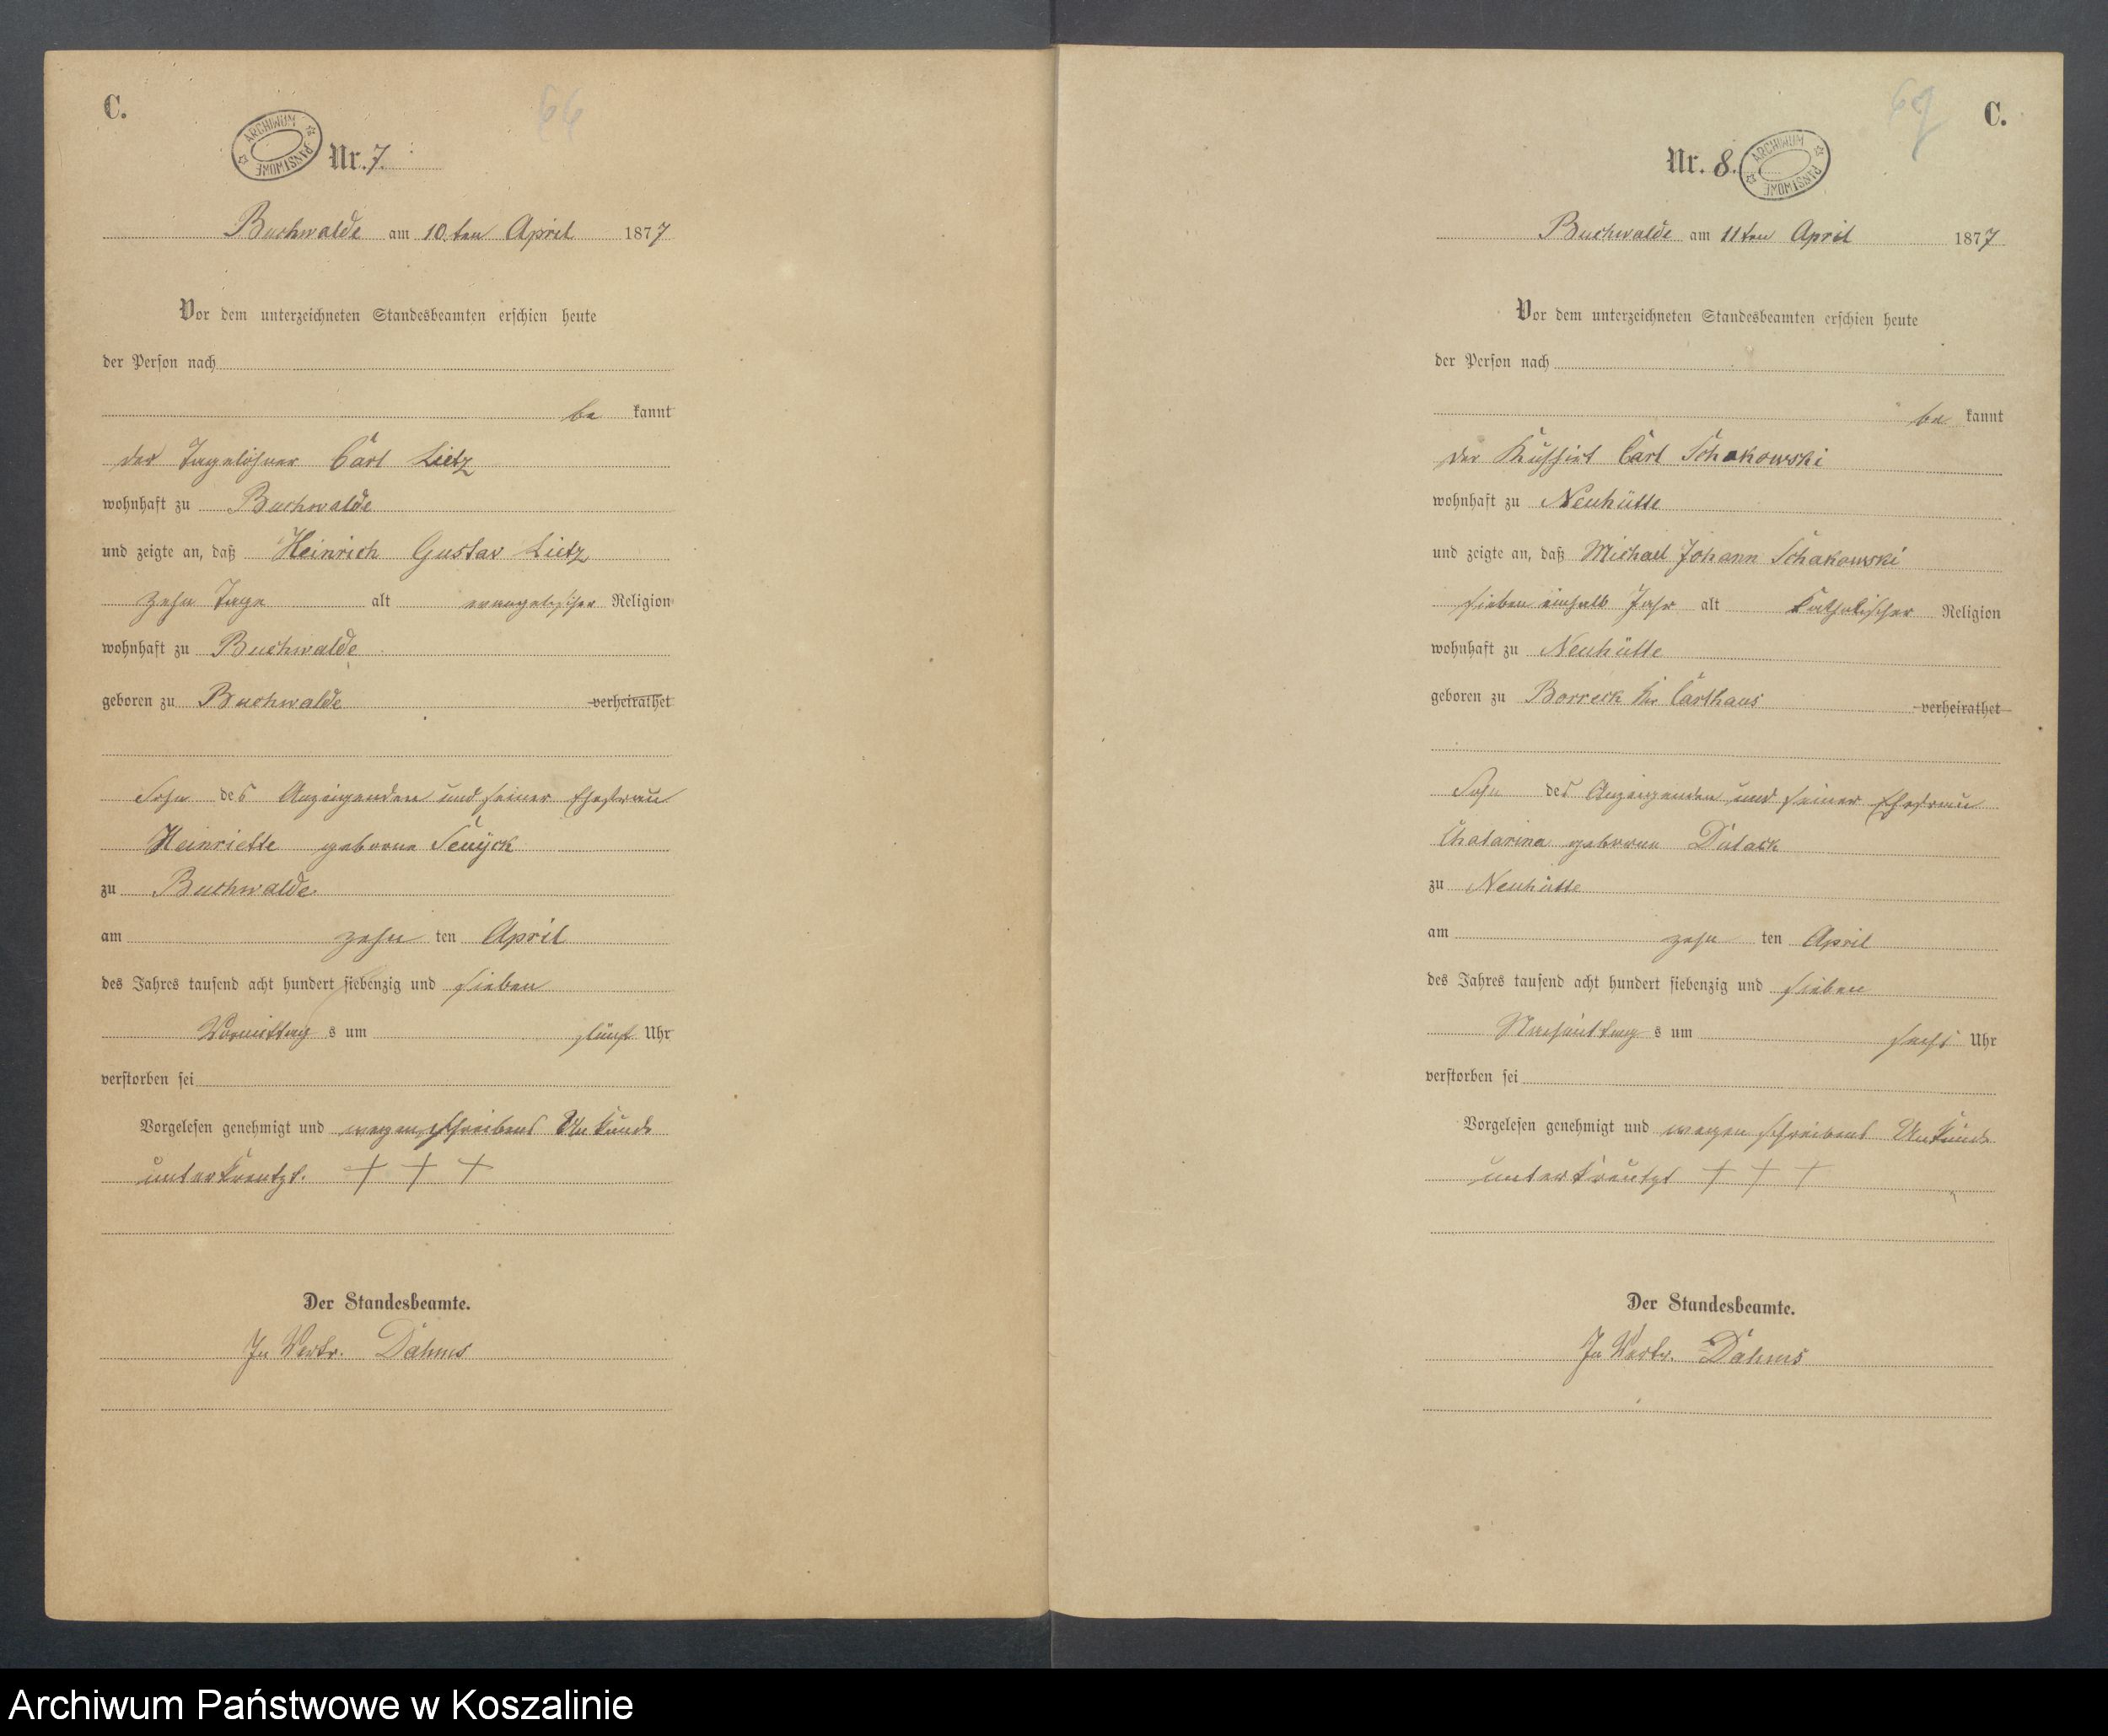 C.
66
ARCHIWUM PAŃSTWOWE
Nr. 7.
Buchwalde am 10ten April 1877
Vor dem unterzeichneten Standesbeamten erschien heute
der Person nach
be kannt
der Tagelöhner Carl Lietz
wohnhaft zu Buchwalde
und zeigte an, daß Heinrich Gustav Lietz
zehn Tage alt evangelischer Religion
wohnhaft zu Buchwalde
geboren zu Buchwalde verheirathet
Sohn des Anzeigenden und seiner Ehefrau
Heinriette geborne
zu Buchwalde.
am zehn ten April
des Jahres tausend acht hundert siebenzig und sieben
Vormittag s um fünf Uhr
verstorben sei
Vorgelesen genehmigt und wegen schreibens Unkunde
unterkreutzt. + + +
Der Standesbeamte.
In Vertr. Dahms
69
C.
Nr. 8.
ARCHIWUM PAŃSTWOWE
Buchwalde am 11ten April 1877
Vor dem unterzeichneten Standesbeamten erschien heute
der Person nach
be kannt
der Kuhhirt Carl Schakowski
wohnhaft zu Neuhütte
und zeigte an, daß Michael Johann Schakowski
sieben einhalb Jahr alt katholischer Religion
wohnhaft zu Neuhütte
geboren zu Borreck Kr Carthaus verheirathet
Sohn des Anzeigenden und seiner Ehefrau
Chatarina geborne
zu Neuhütte
am zehn ten April
des Jahres tausend acht hundert siebenzig und sieben
Nachmittag s um sechs Uhr
verstorben sei
Vorgelesen genehmigt und wegen schreibens Unkunde
unterkreutzt + + +
Der Standesbeamte.
In Vertr. Dahms
Archiwum Państwowe w Koszalinie